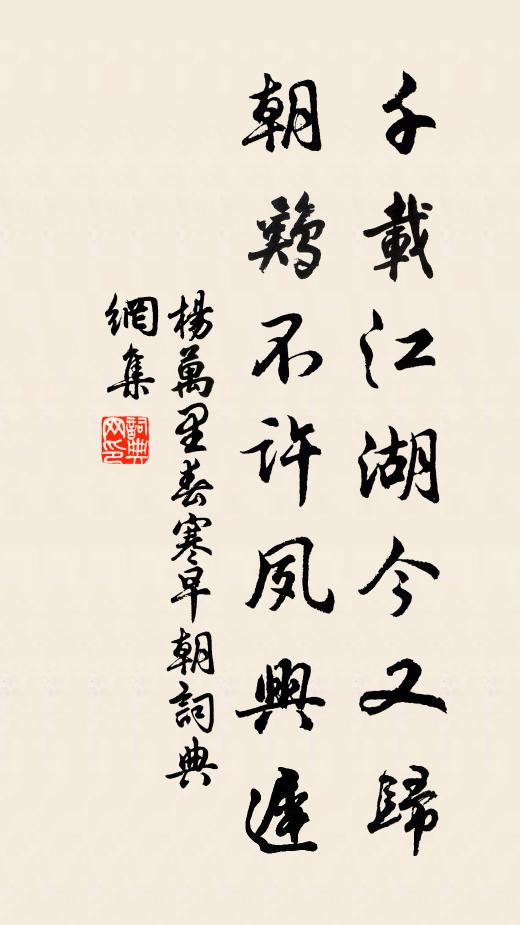 千載江湖今又歸
朝鷄不許夙興遲
楊萬里春寒早朝詞典
網集
詞典
网印